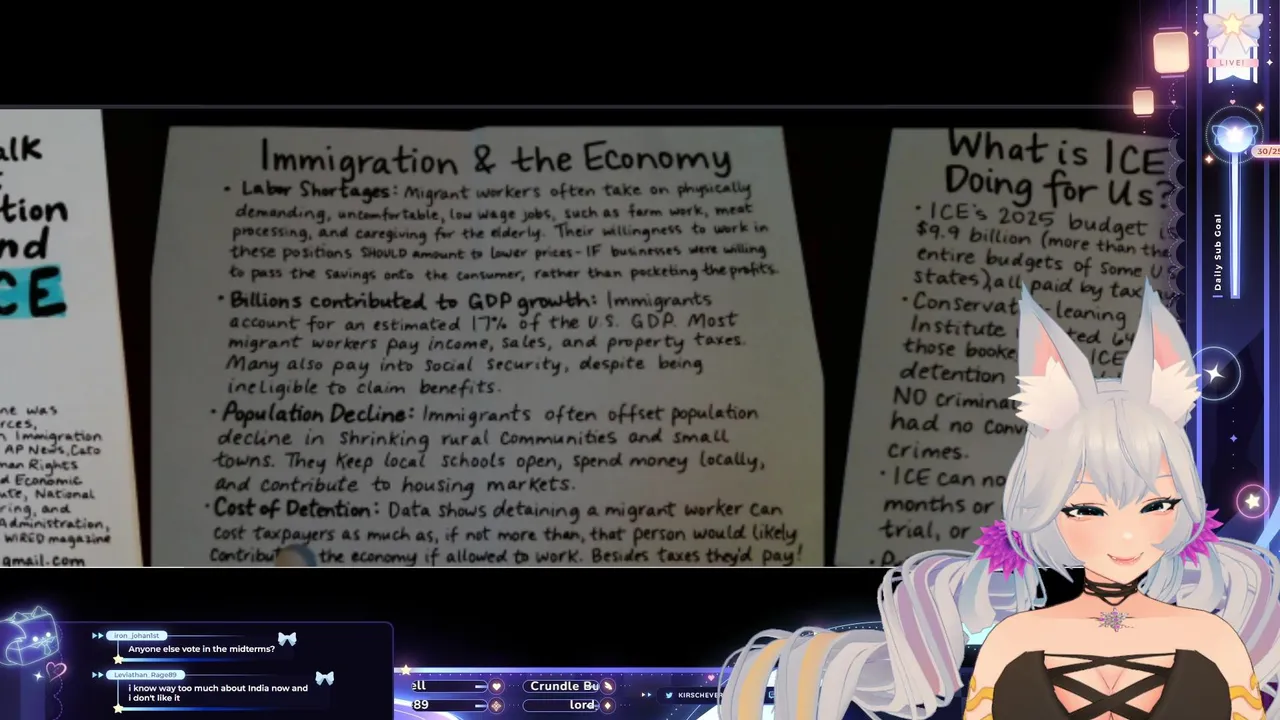 alk
tion
nd
CE
ne was
rces,
n Immigration
AP News, Cato
man Rights
d Economic
ute, National
ring, and
Administration,
WIRED magazine
gmail.com
Immigration & the Economy
• Labor Shortages: Migrant workers often take on physically
demanding, uncomfortable, low wage jobs, such as farm work, meat
processing, and caregiving for the elderly. Their willingness to work in
these positions SHOULD amount to lower prices - IF businesses were willing
to pass the savings onto the consumer, rather than pocketing the profits.
• Billions contributed to GDP growth: Immigrants
account for an estimated 17% of the U.S. GDP. Most
migrant workers pay income, sales, and property taxes.
Many also pay into social security, despite being
ineligible to claim benefits.
• Population Decline: Immigrants often offset population
decline in shrinking rural communities and small
towns. They keep local schools open, spend money locally,
and contribute to housing markets.
• Cost of Detention: Data shows detaining a migrant worker can
cost taxpayers as much as, if not more than, that person would likely
contribut the economy if allowed to work. Besides taxes they'd pay!
What is ICE
Doing for Us?
• ICE's 2025 budget is
$9.9 billion (more than the
entire budgets of some U.S
states), all paid by tax
• Conservat -leaning
Institute ted 64
those booke ICE
detention
NO criminal
had no conv
crimes.
• ICE can no
months or
trial, or
LIVE!
30/25
Daily Sub Goal
iron_johan1st
Anyone else vote in the midterms?
Leviathan_Rage89
i know way too much about India now and
i don't like it
ell
Crundle Bu
89
lord
KIRSCHEVER